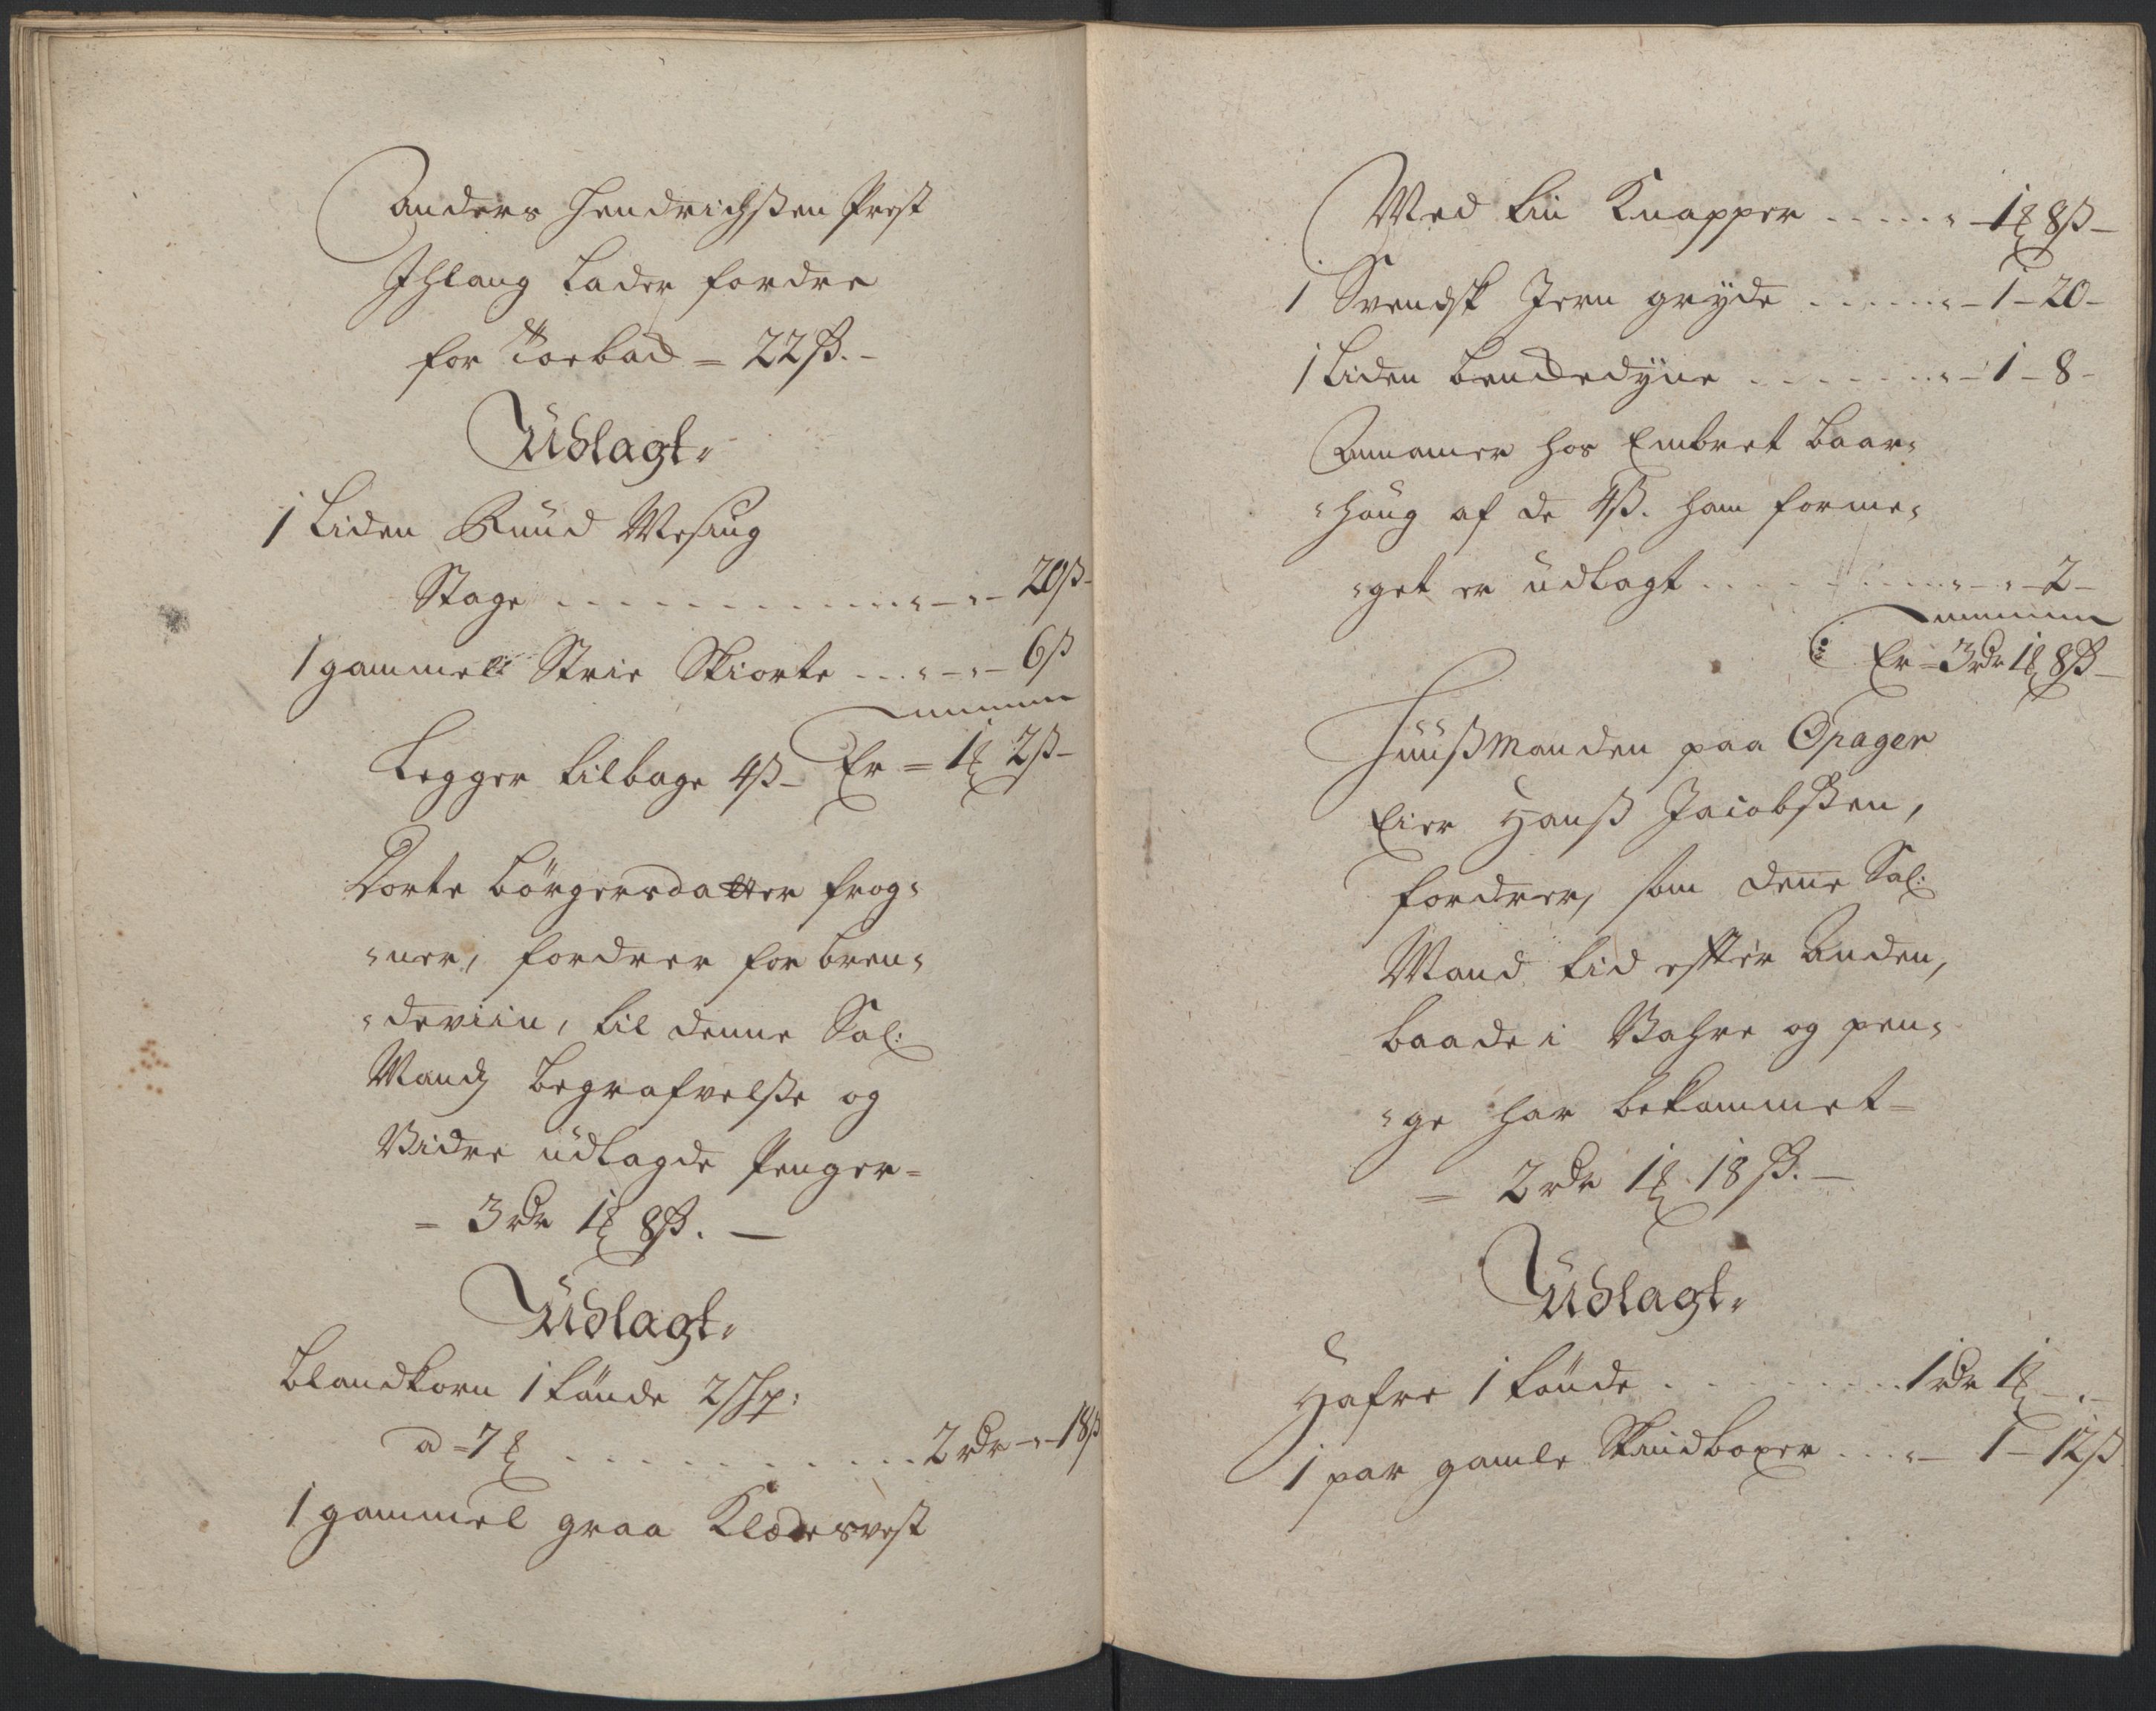 Anders Hendrichsen Prest
Ihlang lader fordre
for Toebad = 22 ß. -
Udlagt.
1 liden Rund Messing
Stage . . . . . . . . . . . - " - 20 ß -
1 gammel Strie Skiorte . . . " - " - 6 ß
Legger tilbage 4 ß - Er = 1 ℔ 2 ß -
Dorte Börgersdatter frog-
-ner, fordrer for bren-
-deviin, til denne Sal:
Mands begrafvelße og
Vidre udlagde Penger =
= 3 rdr 1 ℔ 8 ß. -
Udlagt.
Blandkorn 1 tönde 2 Skp:
a = 7 ℔ . . . . . . . . . . . 2 rdr - " - 18 ß
1 gammel graa Klædesvest
Med tin Knapper . . . . . " - 1 ℔ 8 ß -
1 Svendsk Jern gryde . . . . . " - 1 - 20 -
1 liden bendedyne . . . . . . . " - 1 - 8 -
Annamer hos Embret baar-
-houg af de 4 ß. ham forme-
-get er udlagt . . . . . . . . " - " - 2 -
Er = 3 rdr 1 ℔ 8 ß -
Huußmanden paa Opager
Eier Hanß Jacobßen,
fordrer, som denne Sal:
Mand tid efter anden,
baade i Vahre og pen-
-ge har bekommet =
= 2 rdr 1 ℔ 18 ß. -
Udlagt.
Hafre 1 tönde . . . . . . . . 1 rdr 1 ℔ - " -
1 par gamle Skindboxer . . . " - 1 - 12 ß